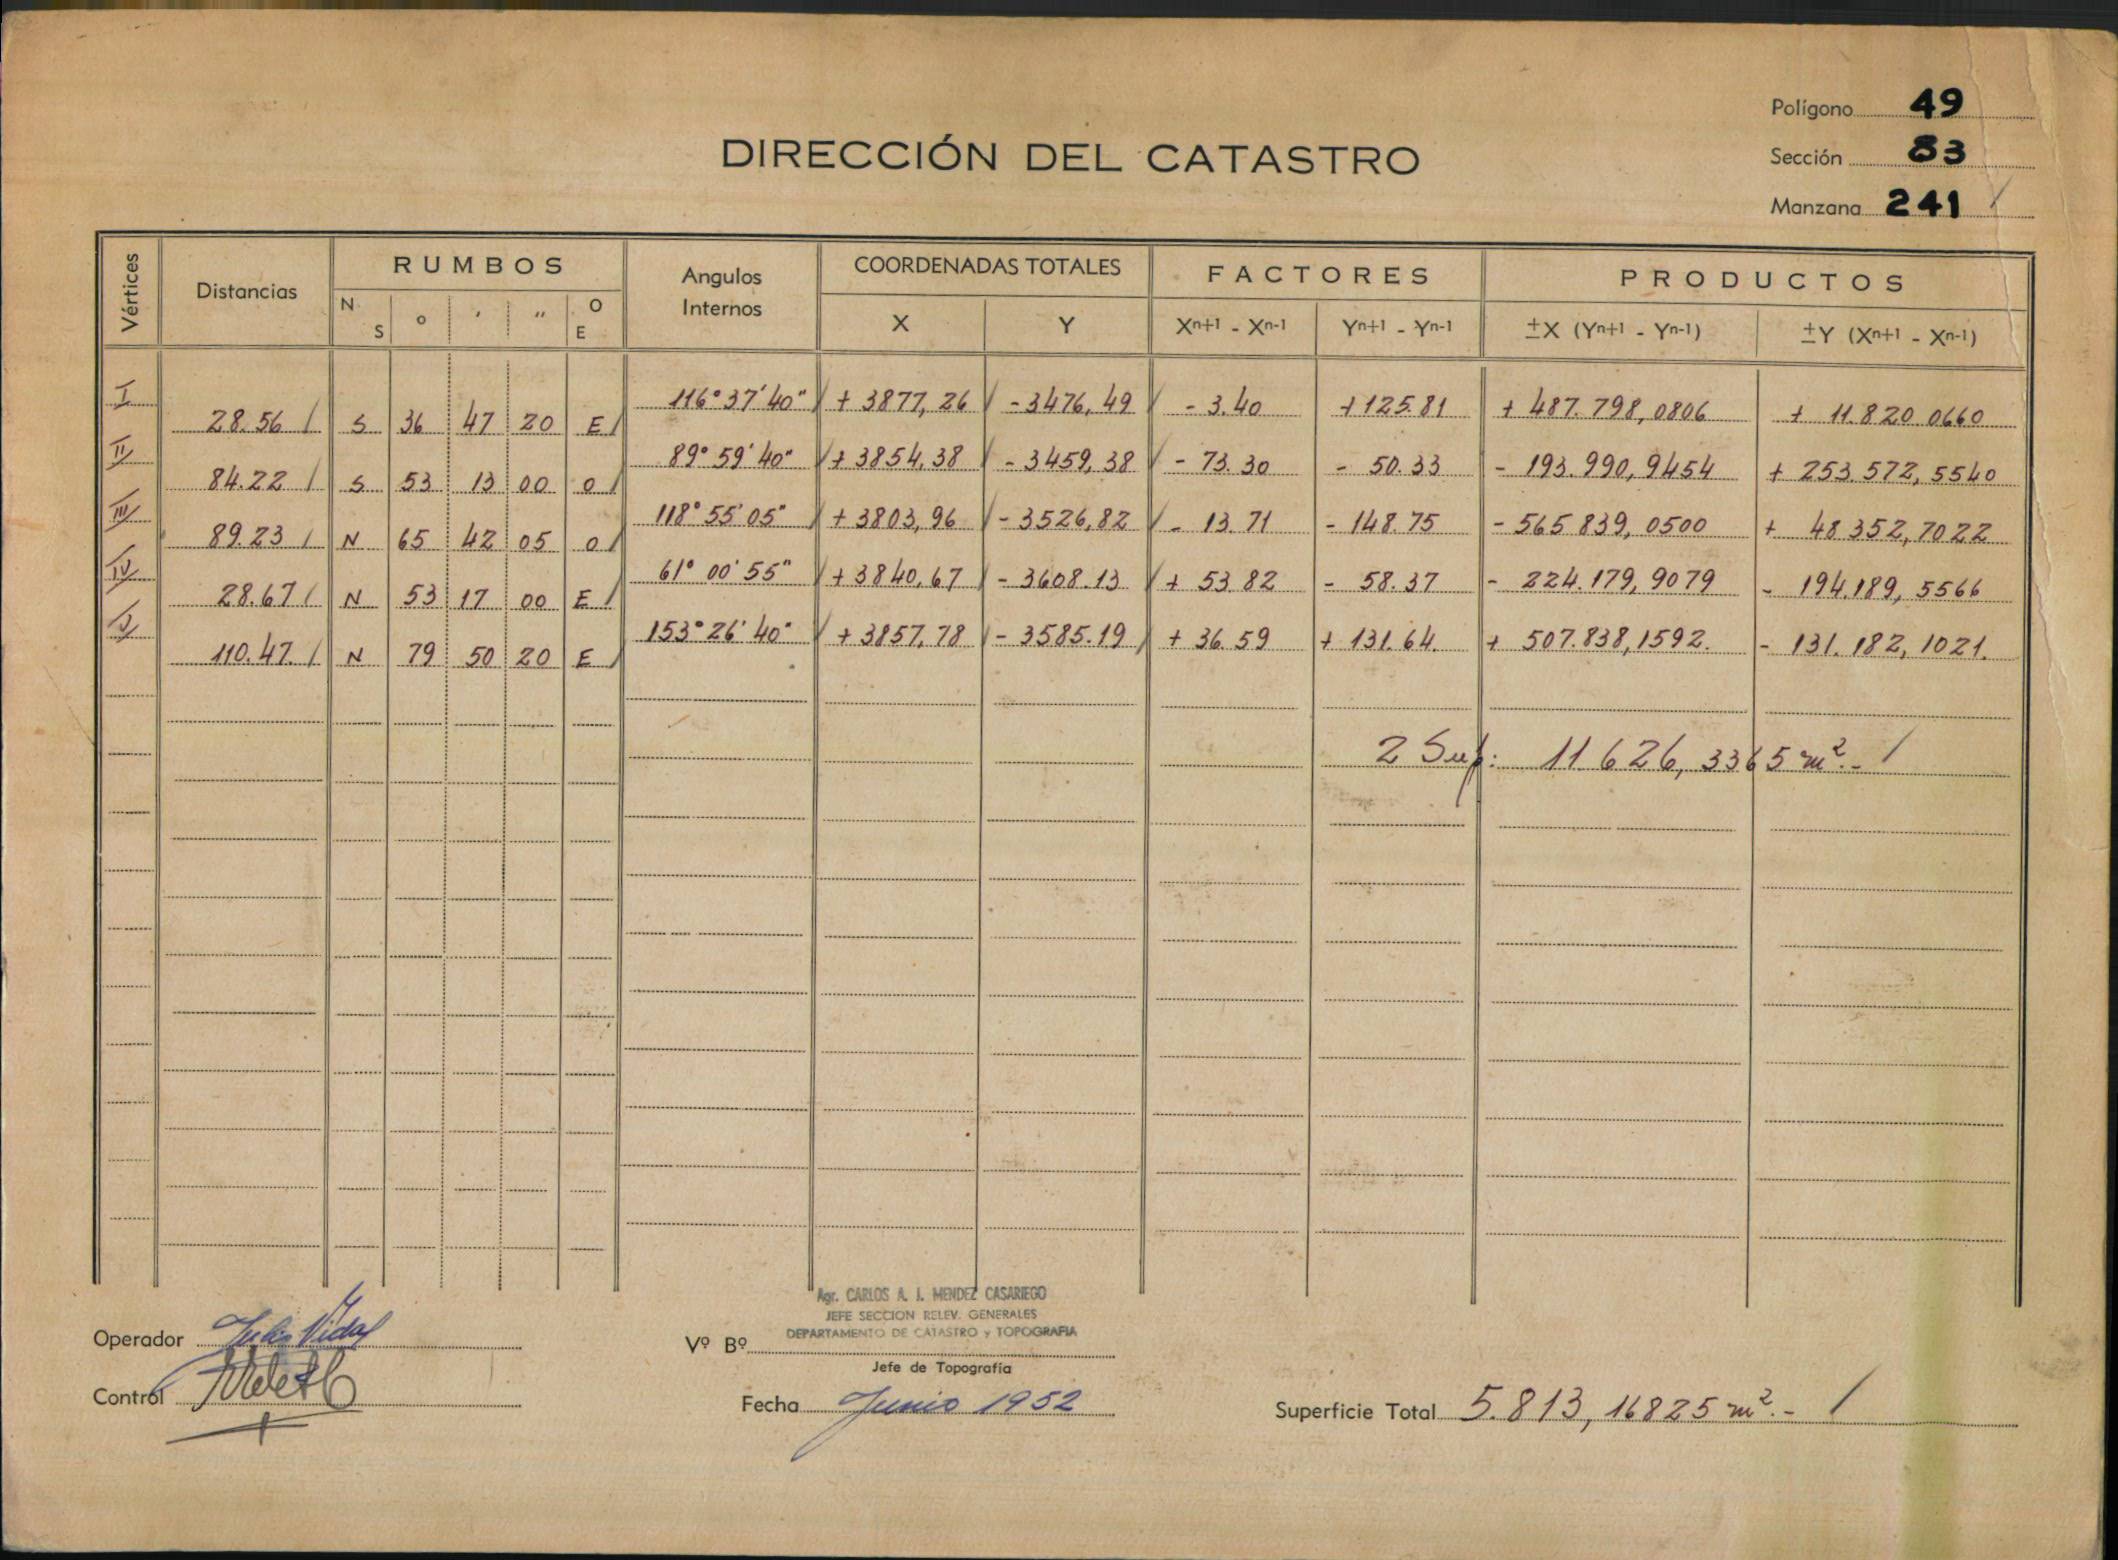 Polígono 49
DIRECCIÓN DEL CATASTRO
Sección 83
Manzana 241
Vértices Distancias RUMBOS Angulos Internos COORDENADAS TOTALES FACTORES PRODUCTOS
N S ° ' " O E X Y Xn+1 - Xn-1 Yn+1 - Yn-1 ±X (Yn+1 - Yn-1) ±Y (Xn+1 - Xn-1)
I 116° 37' 40" + 3877,26 - 3476,49 - 3.40 + 125.81 + 487.798,0806 + 11.820.0660
28.56 S 36 47 20 E
II 89° 59' 40" + 3854,38 - 3459,38 - 73.30 - 50.33 - 193.990,9454 + 253.572,5540
84.22 S 53 13 00 O
III 118° 55' 05" + 3803,96 - 3526,82 - 13.71 - 148.75 - 565.839,0500 + 48.352,7022
89.23 N 65 42 05 O
IV 61° 00' 55" + 3840,67 - 3608.13 + 53.82 - 58.37 - 224.179,9079 - 194.189,5566
28.67 N 53 17 00 E
V 153° 26' 40" + 3857,78 - 3585.19 + 36.59 + 131.64. + 507.838,1592. - 131.182,1021.
110.47. N 79 50 20 E
2 Sup: 11626,3365 m².-
Agr. CARLOS A. I. MENDEZ CASARIEGO
JEFE SECCION RELEV. GENERALES
DEPARTAMENTO DE CATASTRO y TOPOGRAFIA
Operador Julio Vidal
Vº Bº
Jefe de Topografía
Control
Fecha Junio 1952
Superficie Total 5.813,16825 m².-